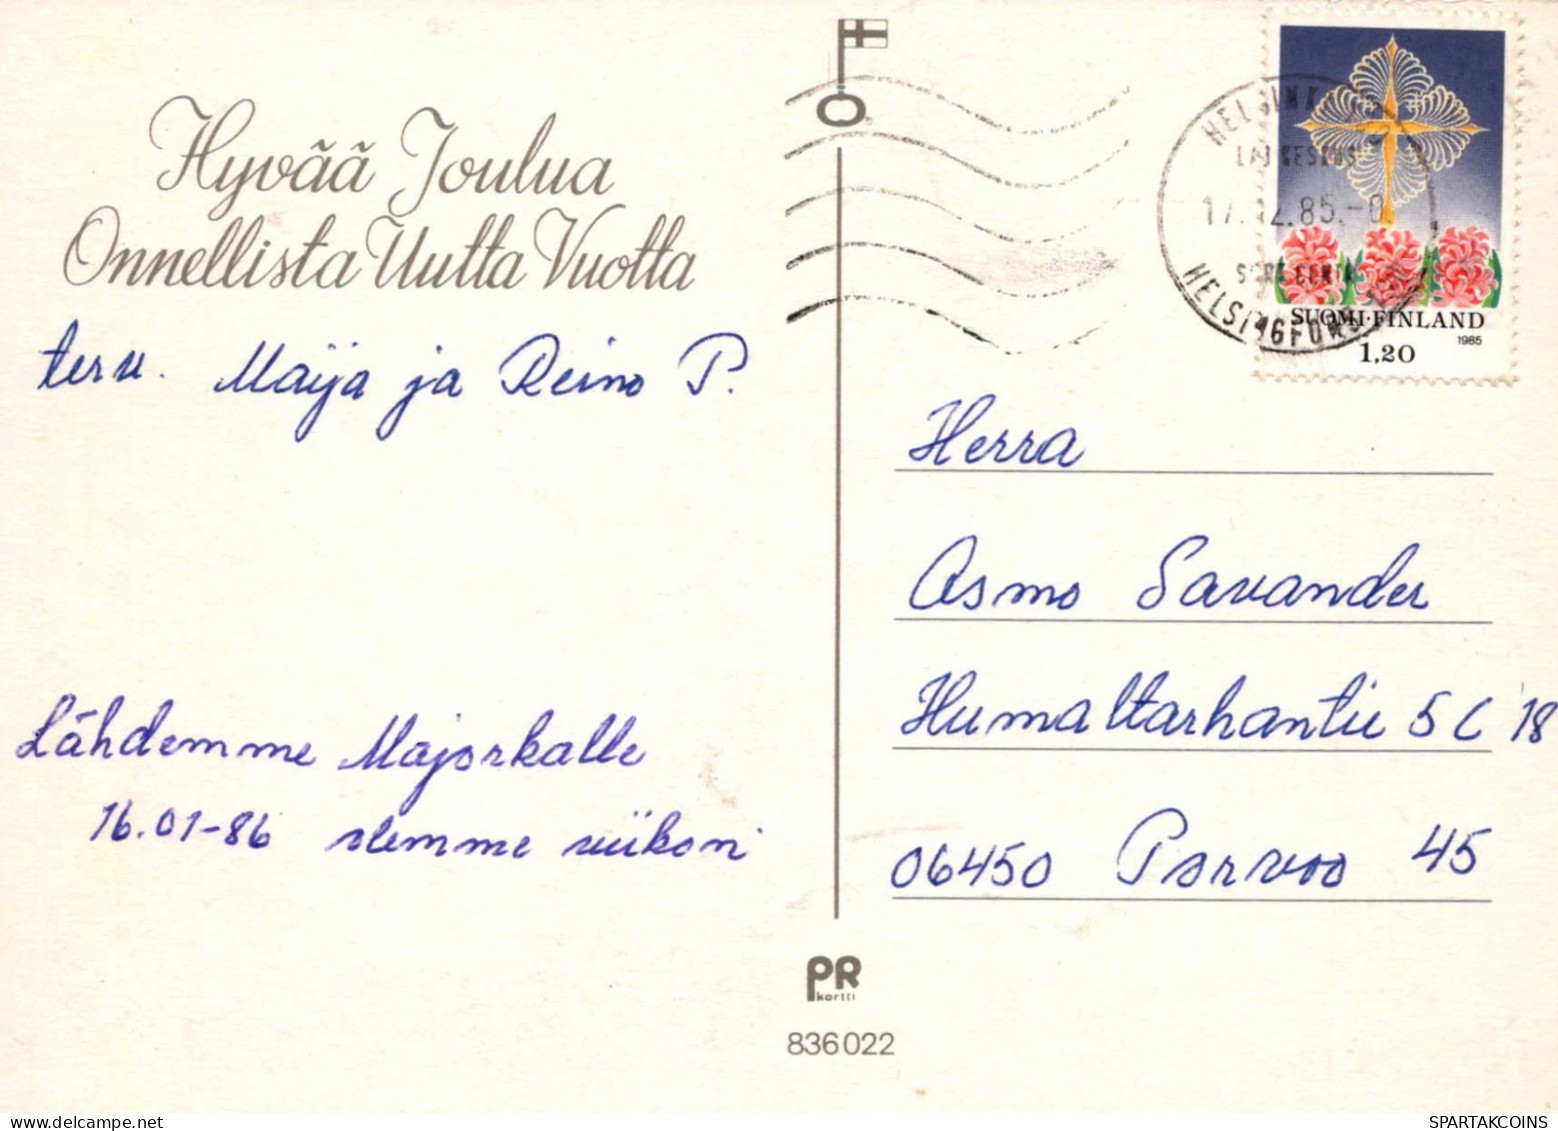 Hyvää Joulua
Onnellista Uutta Vuotta
terv. Maija ja Reino P.
Lähdemme Majorkalle
16.01-86 olemme viikon
HELSINKI
17.12.85.-0
HELSINGFORS
SUOMI·FINLAND
1985
1,20
Herra
Asmo Savander
Humaltarhantie 5 C 18
06450 Porvoo 45
PR
kortti
836022
SPARTAKCOINS